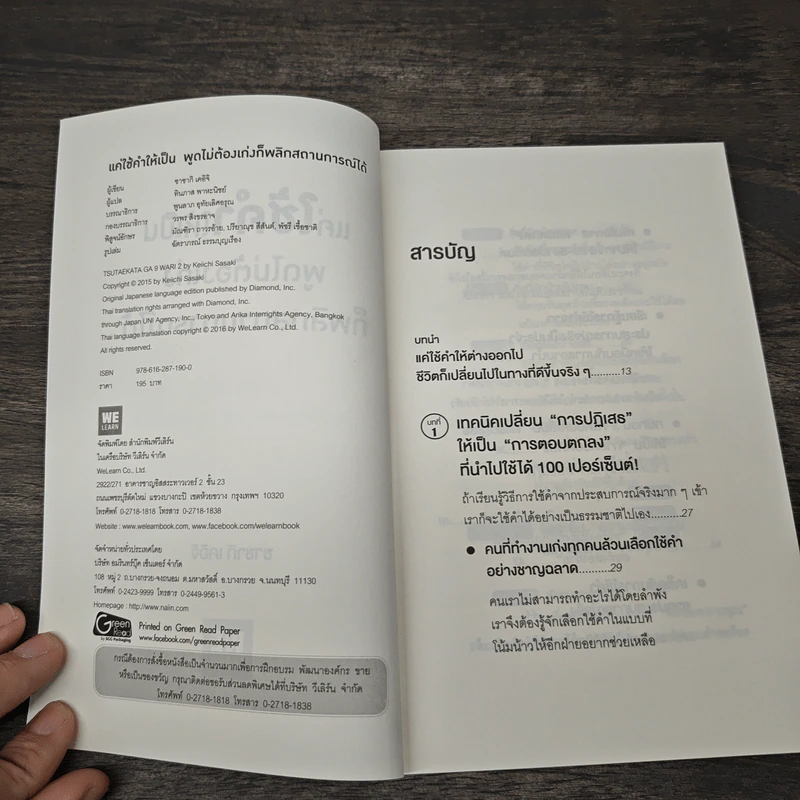 แค่ใช้คำให้เป็น พูดไม่ต้องเก่งก็พลิกสถานการณ์ได้
ผู้เขียน ซาซากิ เคอิจิ
ผู้แปล ทินภาส พาหะนิชย์
บรรณาธิการ พูนลาภ อุทัยเลิศอรุณ
กองบรรณาธิการ วรพร สิงขรอาจ
พิสูจน์อักษร มัณฑิรา ถาวรอ้าย, ปริยาณุช สีสันต์, พัชรี เชื้อชาติ
รูปเล่ม ฉัตราภรณ์ ธรรมบุญเรือง
TSUTAEKATA GA 9 WARI 2 by Keiichi Sasaki
Copyright © 2015 by Keiichi Sasaki
Original Japanese language edition published by Diamond, Inc.
Thai translation rights arranged with Diamond, Inc.
through Japan UNI Agency, Inc., Tokyo and Arika Interrights Agency, Bangkok
Thai language translation copyright © 2016 by WeLearn Co., Ltd.
All rights reserved.
ISBN 978-616-287-190-0
ราคา 195 บาท
WE
LEARN
จัดพิมพ์โดย สำนักพิมพ์วีเลิร์น
ในเครือบริษัท วีเลิร์น จำกัด
WeLearn Co., Ltd.
2922/271 อาคารชาญอิสสระทาวเวอร์ 2 ชั้น 23
ถนนเพชรบุรีตัดใหม่ แขวงบางกะปิ เขตห้วยขวาง กรุงเทพฯ 10320
โทรศัพท์ 0-2718-1818 โทรสาร 0-2718-1838
Website : www.welearnbook.com, www.facebook.com/welearnbook
จัดจำหน่ายทั่วประเทศโดย
บริษัท อมรินทร์บุ๊ค เซ็นเตอร์ จำกัด
108 หมู่ 2 ถ.บางกรวย-จงถนอม ต.มหาสวัสดิ์ อ.บางกรวย จ.นนทบุรี 11130
โทรศัพท์ 0-2423-9999 โทรสาร 0-2449-9561-3
Homepage : http://www.naiin.com
Green Read
by SCG Packaging
Printed on Green Read Paper
www.facebook.com/greenreadpaper
กรณีต้องการสั่งซื้อหนังสือเป็นจำนวนมากเพื่อการฝึกอบรม พัฒนาองค์กร ขาย
หรือเป็นของขวัญ กรุณาติดต่อขอรับส่วนลดพิเศษได้ที่บริษัท วีเลิร์น จำกัด
โทรศัพท์ 0-2718-1818 โทรสาร 0-2718-1838
สารบัญ
บทนำ
แค่ใช้คำให้ต่างออกไป
ชีวิตก็เปลี่ยนไปในทางที่ดีขึ้นจริง ๆ..........13
บทที่ 1
เทคนิคเปลี่ยน “การปฏิเสธ”
ให้เป็น “การตอบตกลง”
ที่นำไปใช้ได้ 100 เปอร์เซ็นต์!
ถ้าเรียนรู้วิธีการใช้คำจากประสบการณ์จริงมาก ๆ เข้า
เราก็จะใช้คำได้อย่างเป็นธรรมชาติไปเอง..........27
● คนที่ทำงานเก่งทุกคนล้วนเลือกใช้คำ
อย่างชาญฉลาด..........29
คนเราไม่สามารถทำอะไรได้โดยลำพัง
เราจึงต้องรู้จักเลือกใช้คำในแบบที่
โน้มน้าวให้อีกฝ่ายอยากช่วยเหลือ